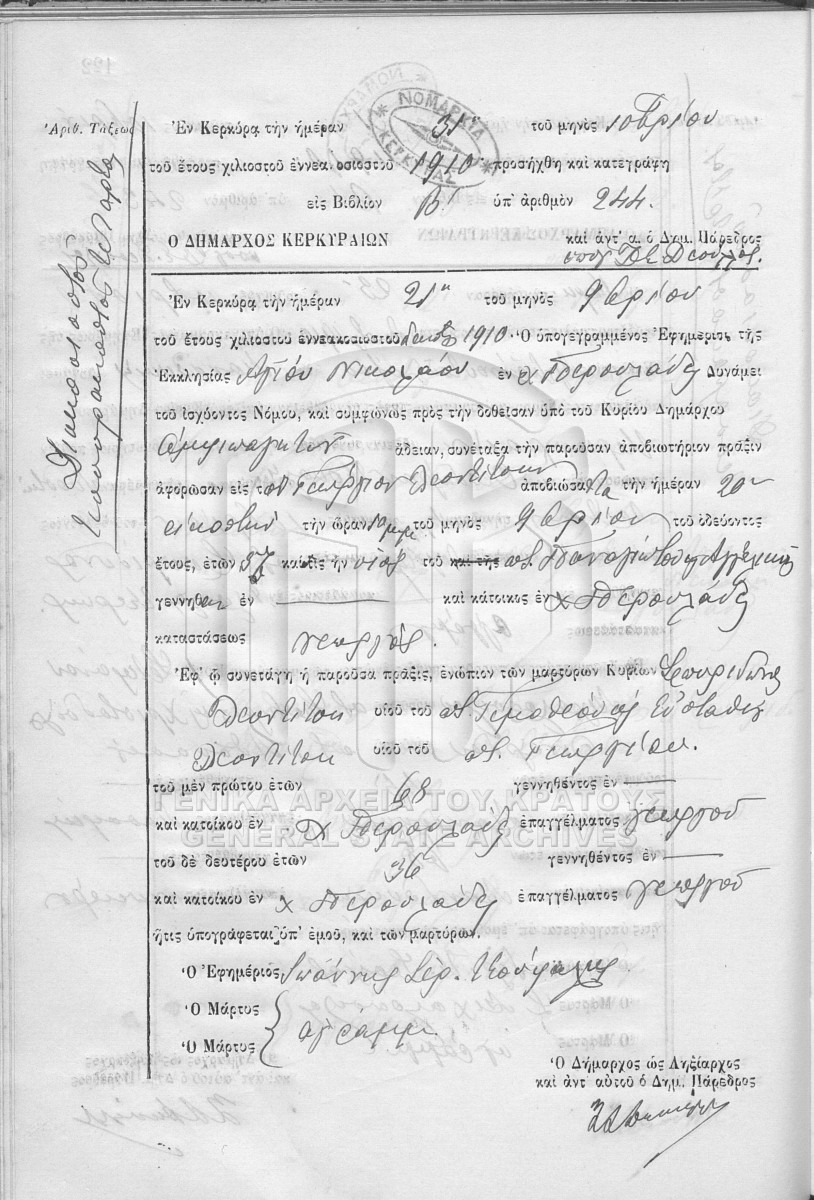 Ἀριθ. Τάξεως
Ἐν Κερκύρᾳ τὴν ἡμέραν 31ην τοῦ μηνὸς 10βρίου
τοῦ ἔτους χιλιοστοῦ ἐννεακοσιοστοῦ 1910 προσήχθη καὶ κατεγράφη
εἰς Βιβλίον Β' ὑπ' ἀριθμὸν 244.
Ο ΔΗΜΑΡΧΟΣ ΚΕΡΚΥΡΑΙΩΝ καὶ ἀντ' α. ὁ Δημ. Πάρεδρος
ΝΟΜΑΡΧΙΑ ΚΕΡΚΥΡΑΣ
Ἐν Κερκύρᾳ τὴν ἡμέραν 21ην τοῦ μηνὸς 9βρίου
τοῦ ἔτους χιλιοστοῦ ἐννεακοσιοστοῦ δεκάτου 1910 Ὁ ὑπογεγραμμένος Ἐφημέριος τῆς
Ἐκκλησίας Ἁγίου Νικολάου ἐν χ Περουλάδες Δυνάμει
τοῦ ἰσχύοντος Νόμου, καὶ συμφώνως πρὸς τὴν δοθεῖσαν ὑπὸ τοῦ Κυρίου Δημάρχου
ἄδειαν, συνέταξα τὴν παροῦσαν ἀποβιωτήριον πρᾶξιν
ἀφορῶσαν εἰς τὸν Γεώργιον Λεοντίτου ἀποβιώσαντα τὴν ἡμέραν 20ην
εἰκοστὴν τὴν ὥραν 10 μμ τοῦ μηνὸς 9βρίου τοῦ ὁδεύοντος
ἔτους, ἐτῶν 37 καὶ ὅστις ἦν υἱὸς τοῦ καὶ τῆς ποτ. Παναγιώτου κ Ἀγγελικῆς
γεννηθεὶς ἐν — καὶ κάτοικος ἐν χ Περουλάδες
καταστάσεως γεωργός.
Ἐφ' ᾧ συνετάγη ἡ παροῦσα πρᾶξις, ἐνώπιον τῶν μαρτύρων Κυρίων Σπυρίδωνος
Λεοντίτου υἱοῦ τοῦ ποτ. Τιμοθέου κ Εὐσταθίου
Λεοντίτου υἱοῦ τοῦ ποτ. Γεωργίου.
τοῦ μὲν πρώτου ἐτῶν 68 γεννηθέντος ἐν —
καὶ κατοίκου ἐν χ Περουλάδες ἐπαγγέλματος γεωργοῦ
τοῦ δὲ δευτέρου ἐτῶν 36 γεννηθέντος ἐν —
καὶ κατοίκου ἐν χ Περουλάδες ἐπαγγέλματος γεωργοῦ
ἥτις ὑπογράφεται ὑπ' ἐμοῦ, καὶ τῶν μαρτύρων.
Ὁ Ἐφημέριος Ἰωάννης
Ὁ Μάρτυς
ἀγράμμ.
Ὁ Μάρτυς
Ὁ Δήμαρχος ὡς Ληξίαρχος
καὶ ἀντ' αὐτοῦ ὁ Δημ. Πάρεδρος
ΓΕΝΙΚΑ ΑΡΧΕΙΑ ΤΟΥ ΚΡΑΤΟΥΣ
GENERAL STATE ARCHIVES